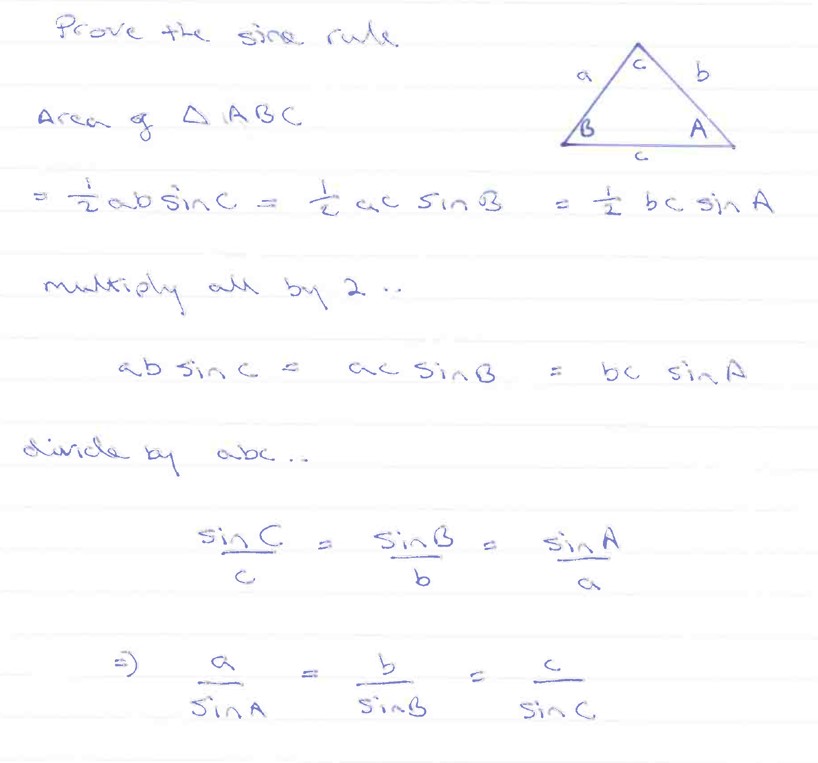 Prove the sine rule
a C b
Area of △ ABC
B A
c
= 1/2 ab sin C = 1/2 ac sin B = 1/2 bc sin A
multiply all by 2 ..
ab sin C = ac sin B = bc sin A
divide by abc ..
sin C / c = sin B / b = sin A / a
⇒ a / sin A = b / sin B = c / sin C